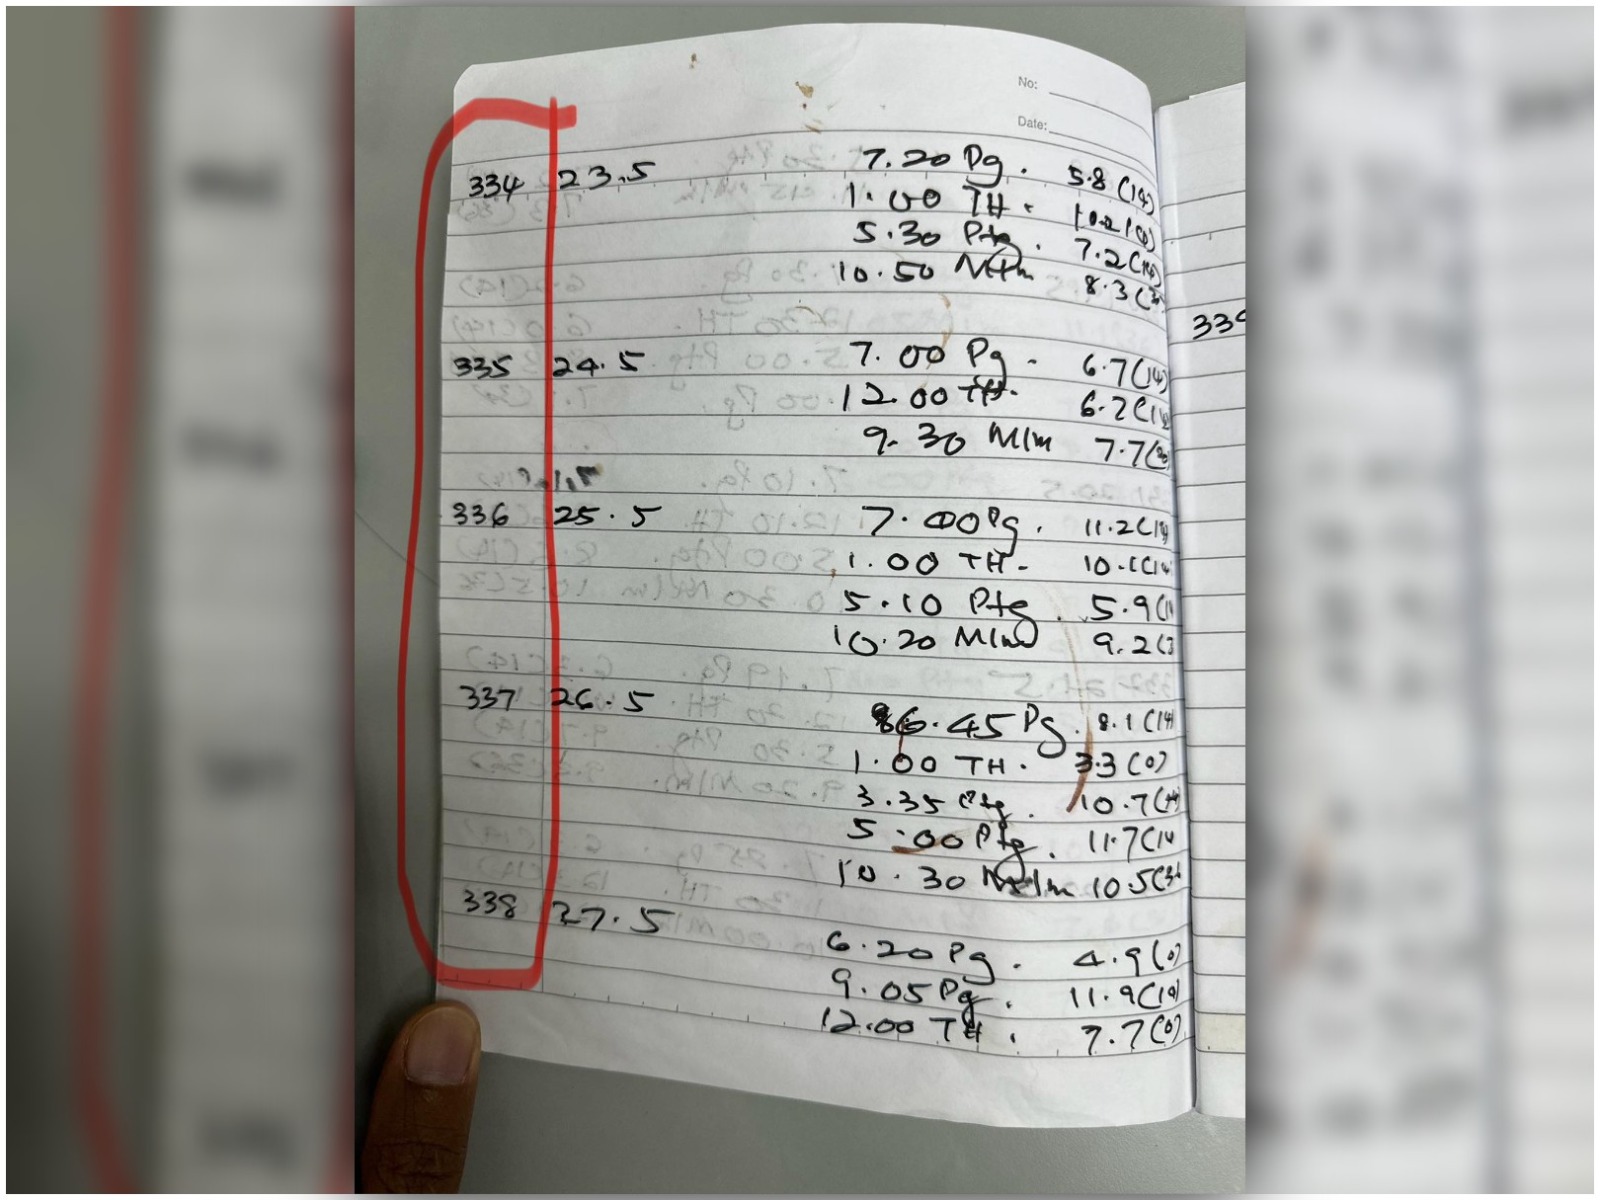 No:
Date:
334 23.5 7.20 Pg. 5.8 (14)
1.00 TH.
5.30 Ptg. 7.2 (14)
10.50 Mlm 8.3 (
335 24.5 7.00 Pg - 6.7 (14)
12.00 TH. 6.2 (14
9.30 Mlm 7.7 (
336 25.5 7.00 Pg. 11.2 (14
1.00 TH - 10.1 (14
5.10 Ptg. 5.9 (1
10.20 Mlm 9.2 (3
337 26.5 6.45 Pg. 8.1 (14
1.00 TH. 3.3 (0)
3.35 Ptg. 10.7 (
5.00 Ptg. 11.7 (14
10.30 Mlm 10.5 (3
338 27.5
6.20 Pg. 4.9 (0)
9.05 Pg. 11.9 (
12.00 TH. 7.7 (0)